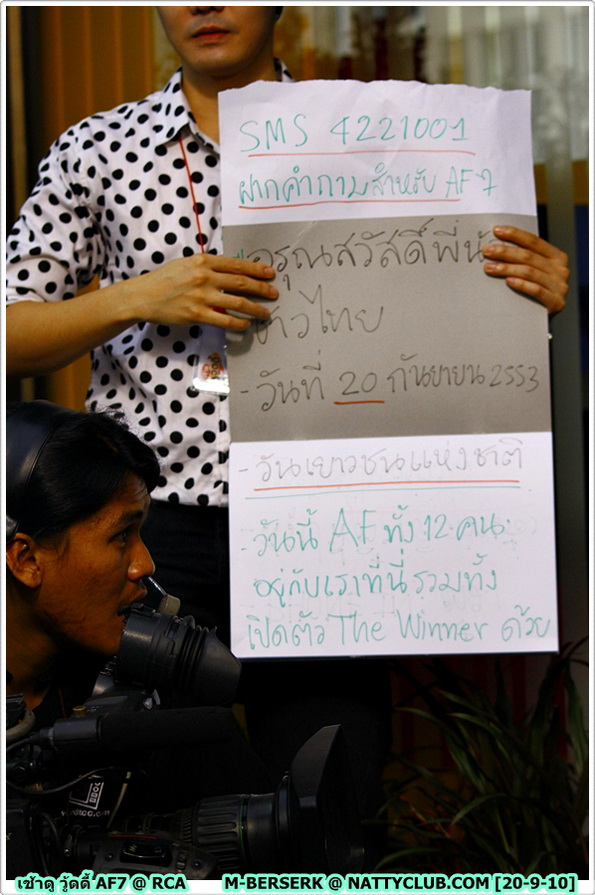 SMS 4221001
ฝากคำถามสำหรับ AF7
อรุณสวัสดิ์พี่น้
ชาวไทย
- วันที่ 20 กันยายน 2553
- วันเยาวชนแห่งชาติ
- วันนี้ AF ทั้ง 12 คน
อยู่กับเราที่นี่ รวมทั้ง
เปิดตัว The Winner ด้วย
เช้าดู วู้ดดี้ AF7 @ RCA M-BERSERK @ NATTYCLUB.COM [20-9-10]